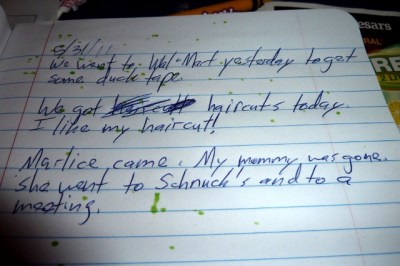 5/31/11
We went to Wal-Mart yesterday to get
some duck tape.
We got haircuts today.
I like my haircut!
Marlice came. My mommy was gone.
She went to Schnuck's and to a
meeting.
esars
RAL
RE